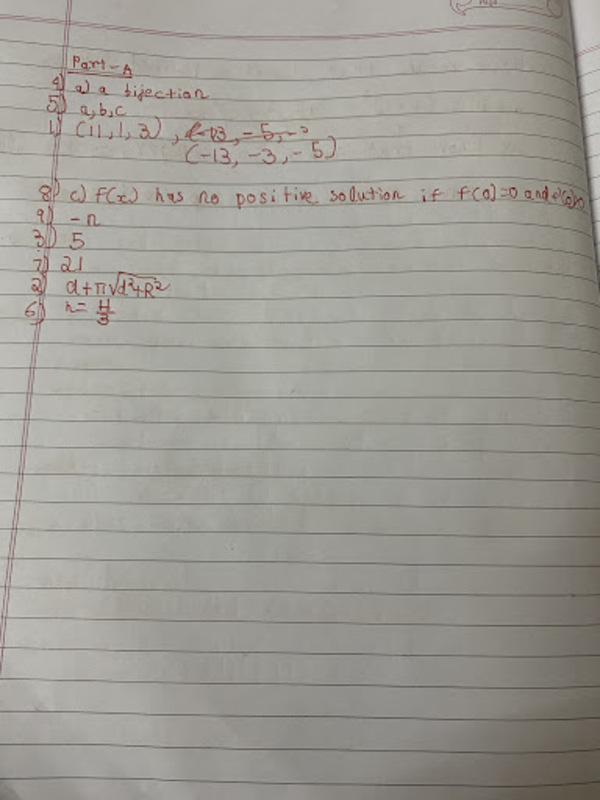 Part-A
4) a) a bijection
5) a, b, c
1) (11, 1, 3),
(-13, -3, -5)
8) c) f(x) has no positive solution if f(0)=0 and
9) -n
3) 5
7) 21
2) d+π√d²+R²
6) h= H/3